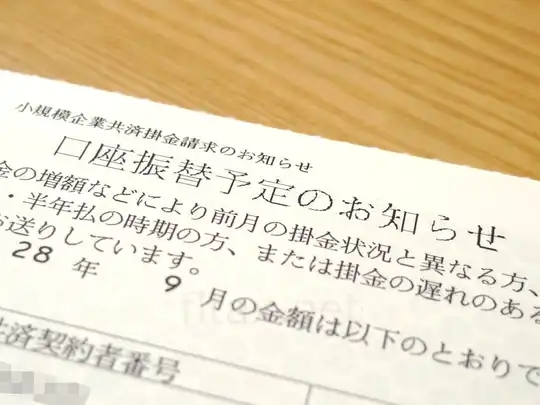 小規模企業共済掛金請求のお知らせ
口座振替予定のお知らせ
金の増額などにより前月の掛金状況と異なる方、
・半年払の時期の方、または掛金の遅れのある
お送りしています。
28 年 9 月の金額は以下のとおりで
共済契約者番号